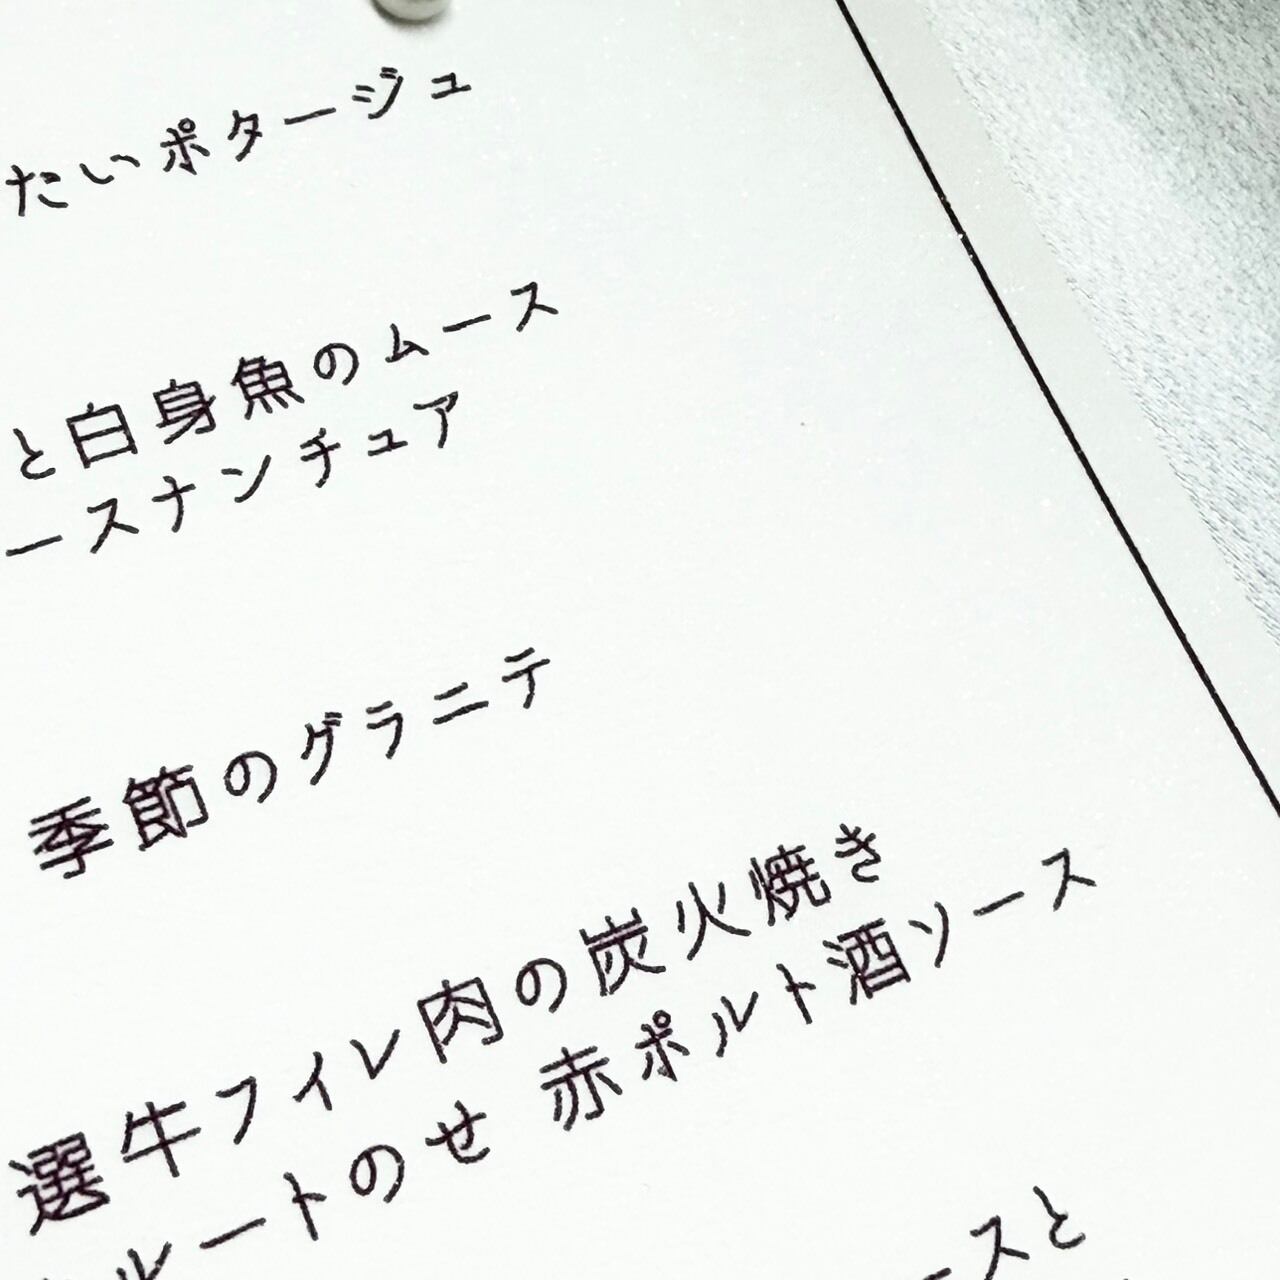 たいポタージュ
と白身魚のムース
ースナンチュア
季節のグラニテ
選牛フィレ肉の炭火焼き
ルートのせ 赤ポルト酒ソース
ースと